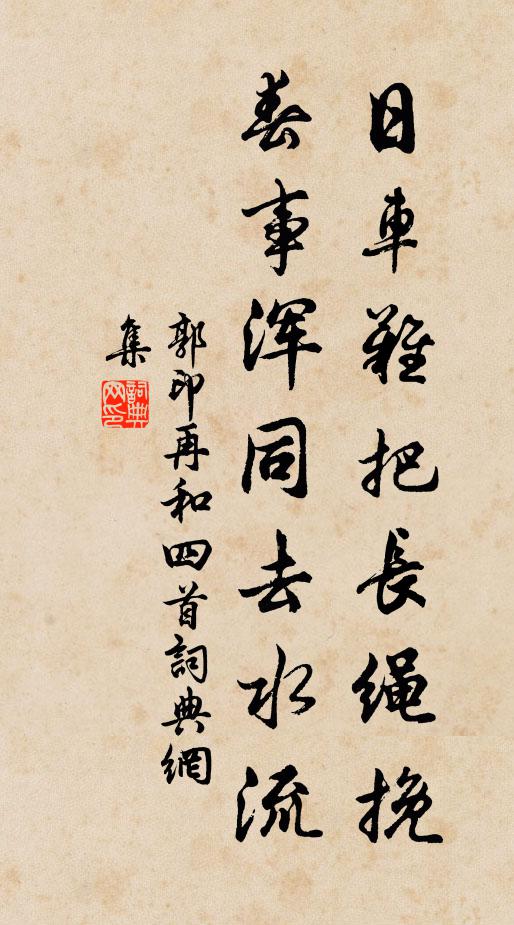 日車難把長繩挽
春事渾同去水流
郭印再和四首詞典網
集
詞典網印